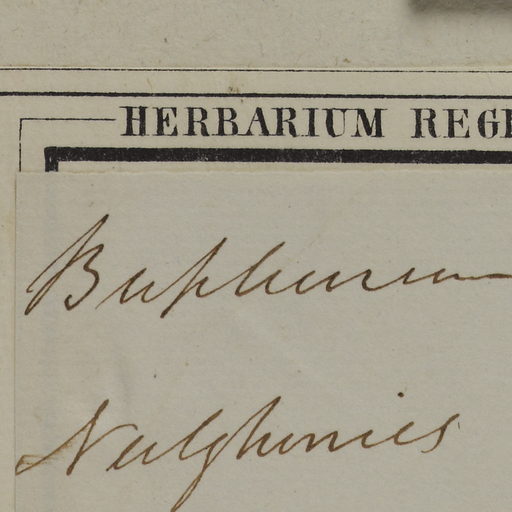 HERBARIUM REGI
Bupleurum
Nulghunies